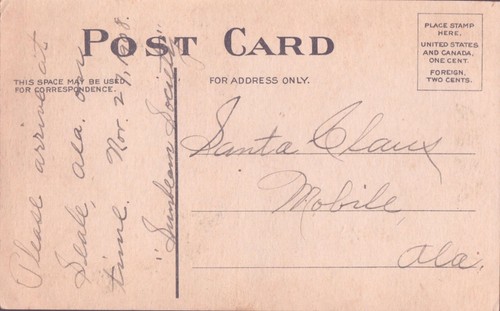 POST CARD
THIS SPACE MAY BE USED
FOR CORRESPONDENCE.
FOR ADDRESS ONLY.
PLACE STAMP
HERE.
UNITED STATES
AND CANADA,
ONE CENT.
FOREIGN,
TWO CENTS.
Please arrive at
Seale, Ala. on
time. Nov. 27, 1908.
"Sunbeam Society"
Santa Claus
Mobile,
Ala.